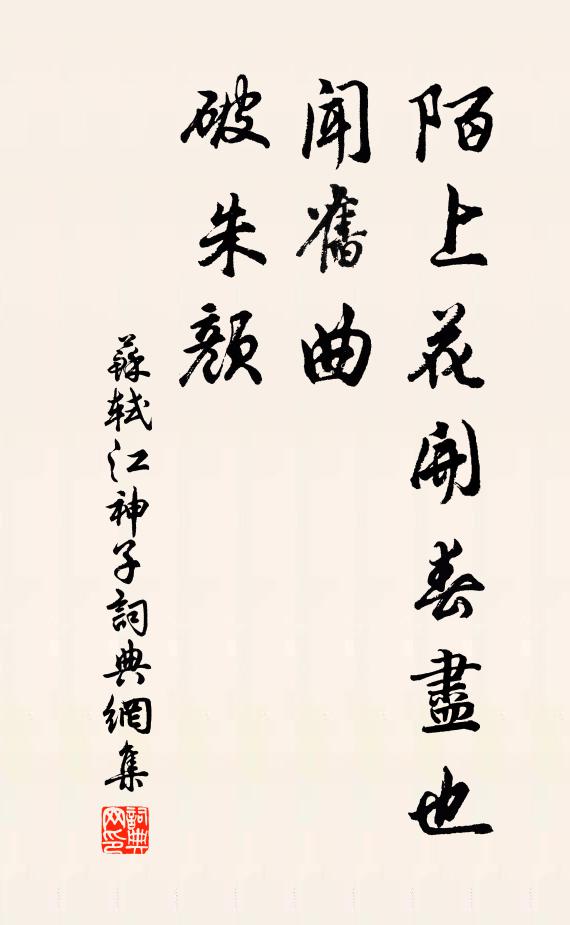 陌上花開春盡也
聞舊曲
破朱顏
蘇軾江神子詞典網集
詞典网印